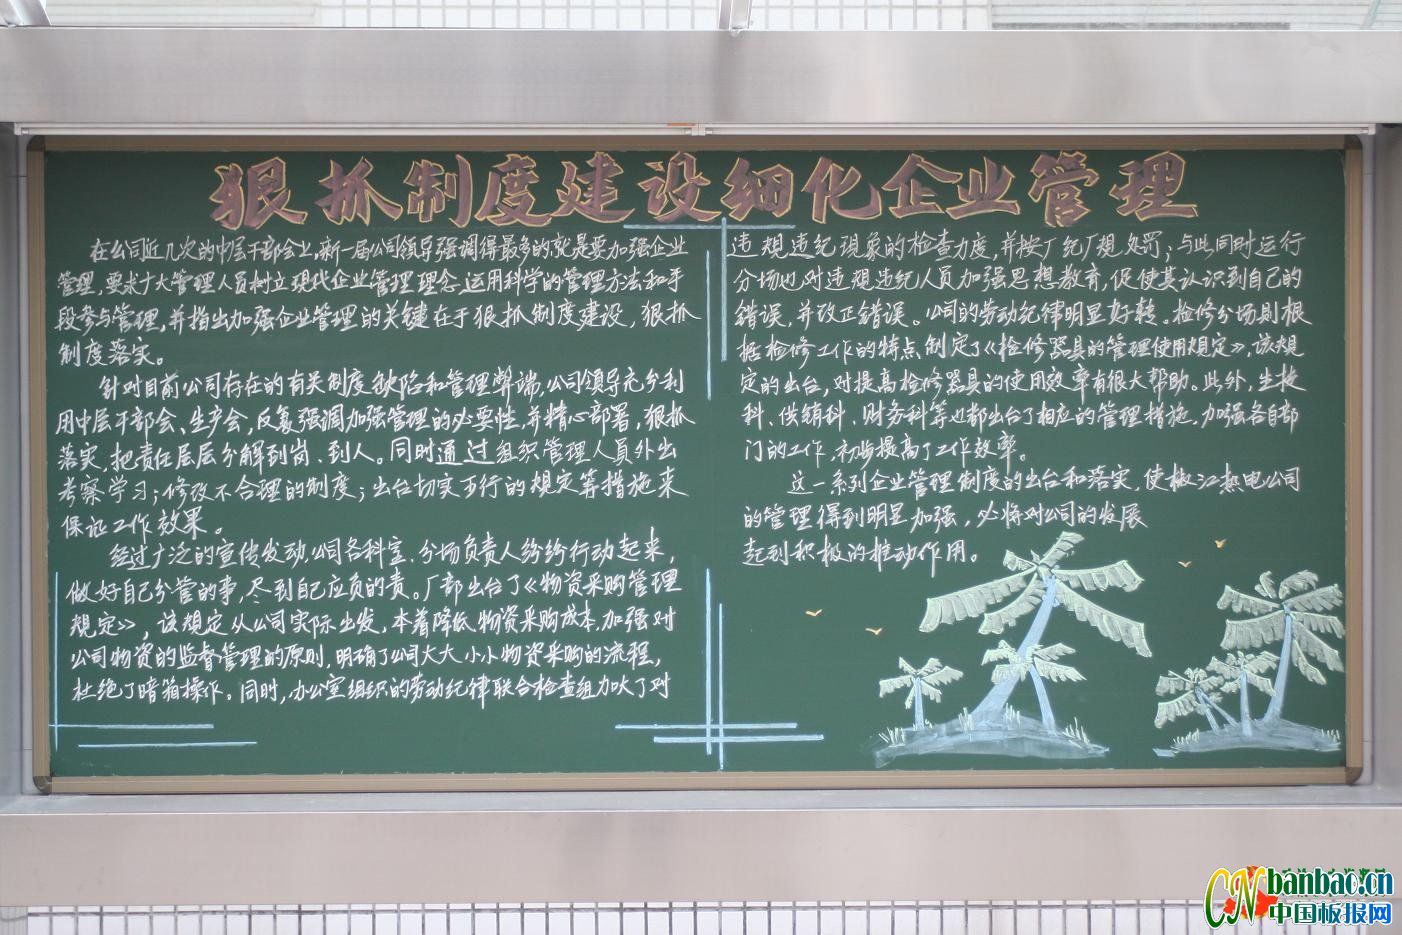 狠抓制度建设细化企业管理
在公司近几次的中层干部会上,新一届公司领导强调得最多的就是要加强企业
管理,要求广大管理人员树立现代企业管理理念.运用科学的管理方法和手
段参与管理,并指出加强企业管理的关键在于狠抓制度建设,狠抓
制度落实。
针对目前公司存在的有关制度缺陷和管理弊端,公司领导充分利
用中层干部会、生产会,反复强调加强管理的必要性,并精心部署,狠抓
落实,把责任层层分解到岗、到人。同时通过组织管理人员外出
考察学习;修改不合理的制度;出台切实可行的规定等措施来
保证工作效果。
经过广泛的宣传发动,公司各科室、分场负责人纷纷行动起来,
做好自己分管的事,尽到自己应负的责。厂部出台了《物资采购管理
规定》,该规定从公司实际出发,本着降低物资采购成本,加强对
公司物资的监督管理的原则,明确了公司大大小小物资采购的流程,
杜绝了暗箱操作。同时,办公室组织的劳动纪律联合检查组加大了对
违规违纪现象的检查力度,并按厂纪厂规处罚;与此同时运行
分场也对违规违纪人员加强思想教育,促使其认识到自己的
错误,并改正错误。公司的劳动纪律明显好转。检修分场则根
据检修工作的特点,制定了《检修器具的管理使用规定》,该规
定的出台,对提高检修器具的使用效率有很大帮助。此外,生技
科、供销科、财务科等也都出台了相应的管理措施,加强各自部
门的工作,初步提高了工作效率。
这一系列企业管理制度的出台和落实,使椒江热电公司
的管理得到明显加强,必将对公司的发展
起到积极的推动作用。
CN banbao.cn
中国板报网